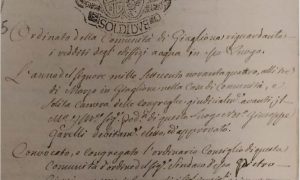 SOLDI DVE
Ordinato della Comunità di Giaglione riguardante
i redditi degl'edifizj acqua in esso Luogo.
L'anno del Signore mille settecento novanta quattro, alli
di Marzo in Giaglione nella Casa di Comunità, e
solita Camera delle congreghe giudicialmente avanti
di questo Luogo Giuseppe
Convocato, e congregato l'ordinario Consiglio di questa
Comunità d'ordine del Sig. Sindaco